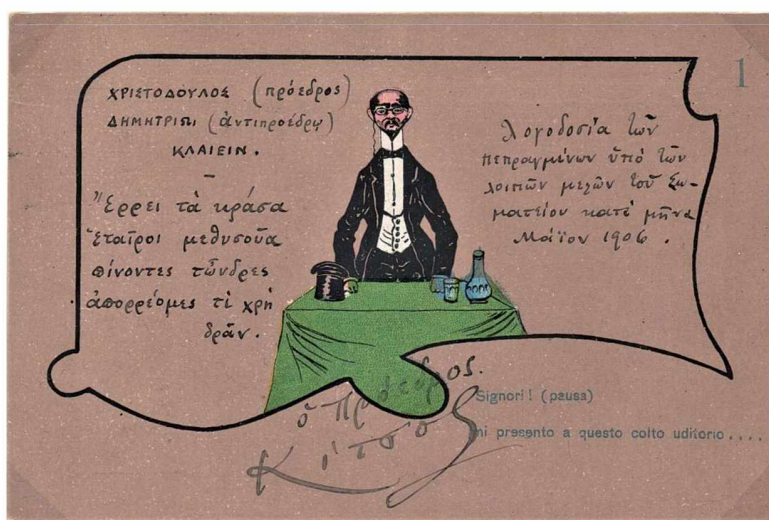 1
ΧΡΙΣΤΟΔΟΥΛΟΣ (πρόεδρος)
ΔΗΜΗΤΡΙῼ (ἀντιπροέδρῳ)
ΚΛΑΙΕΙΝ.
–
"Ερρει τὰ κράσα
Ἑταῖροι μεθυσοῦα
πίνοντες τὦνδρες
ἀπορρέομες τί χρὴ
δρᾶν.
Λογοδοσία τῶν
πεπραγμένων ὑπὸ τῶν
λοιπῶν μελῶν τοῦ Σω-
ματείου κατὰ μῆνα
Μάϊον 1906.
ὁ πρόεδρος.
Κίτσος
Signori! (pausa)
mi presento a questo colto uditorio....